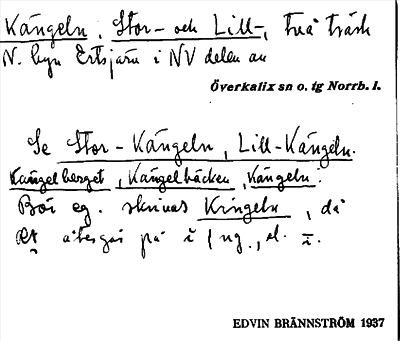 Kängeln, Stor- och Lill-, två träsk
N. byn Ertsjärv i NV delen av
Överkalix sn o. tg Norrb. l.
Se Stor-Kängeln, Lill-Kängeln.
Kängelberget, Kängelbäcken, Kängeln.
Bör eg. skrivas Kringeln, då
återgår på ĭ f ng., el. ĭ.
EDVIN BRÄNNSTRÖM 1937